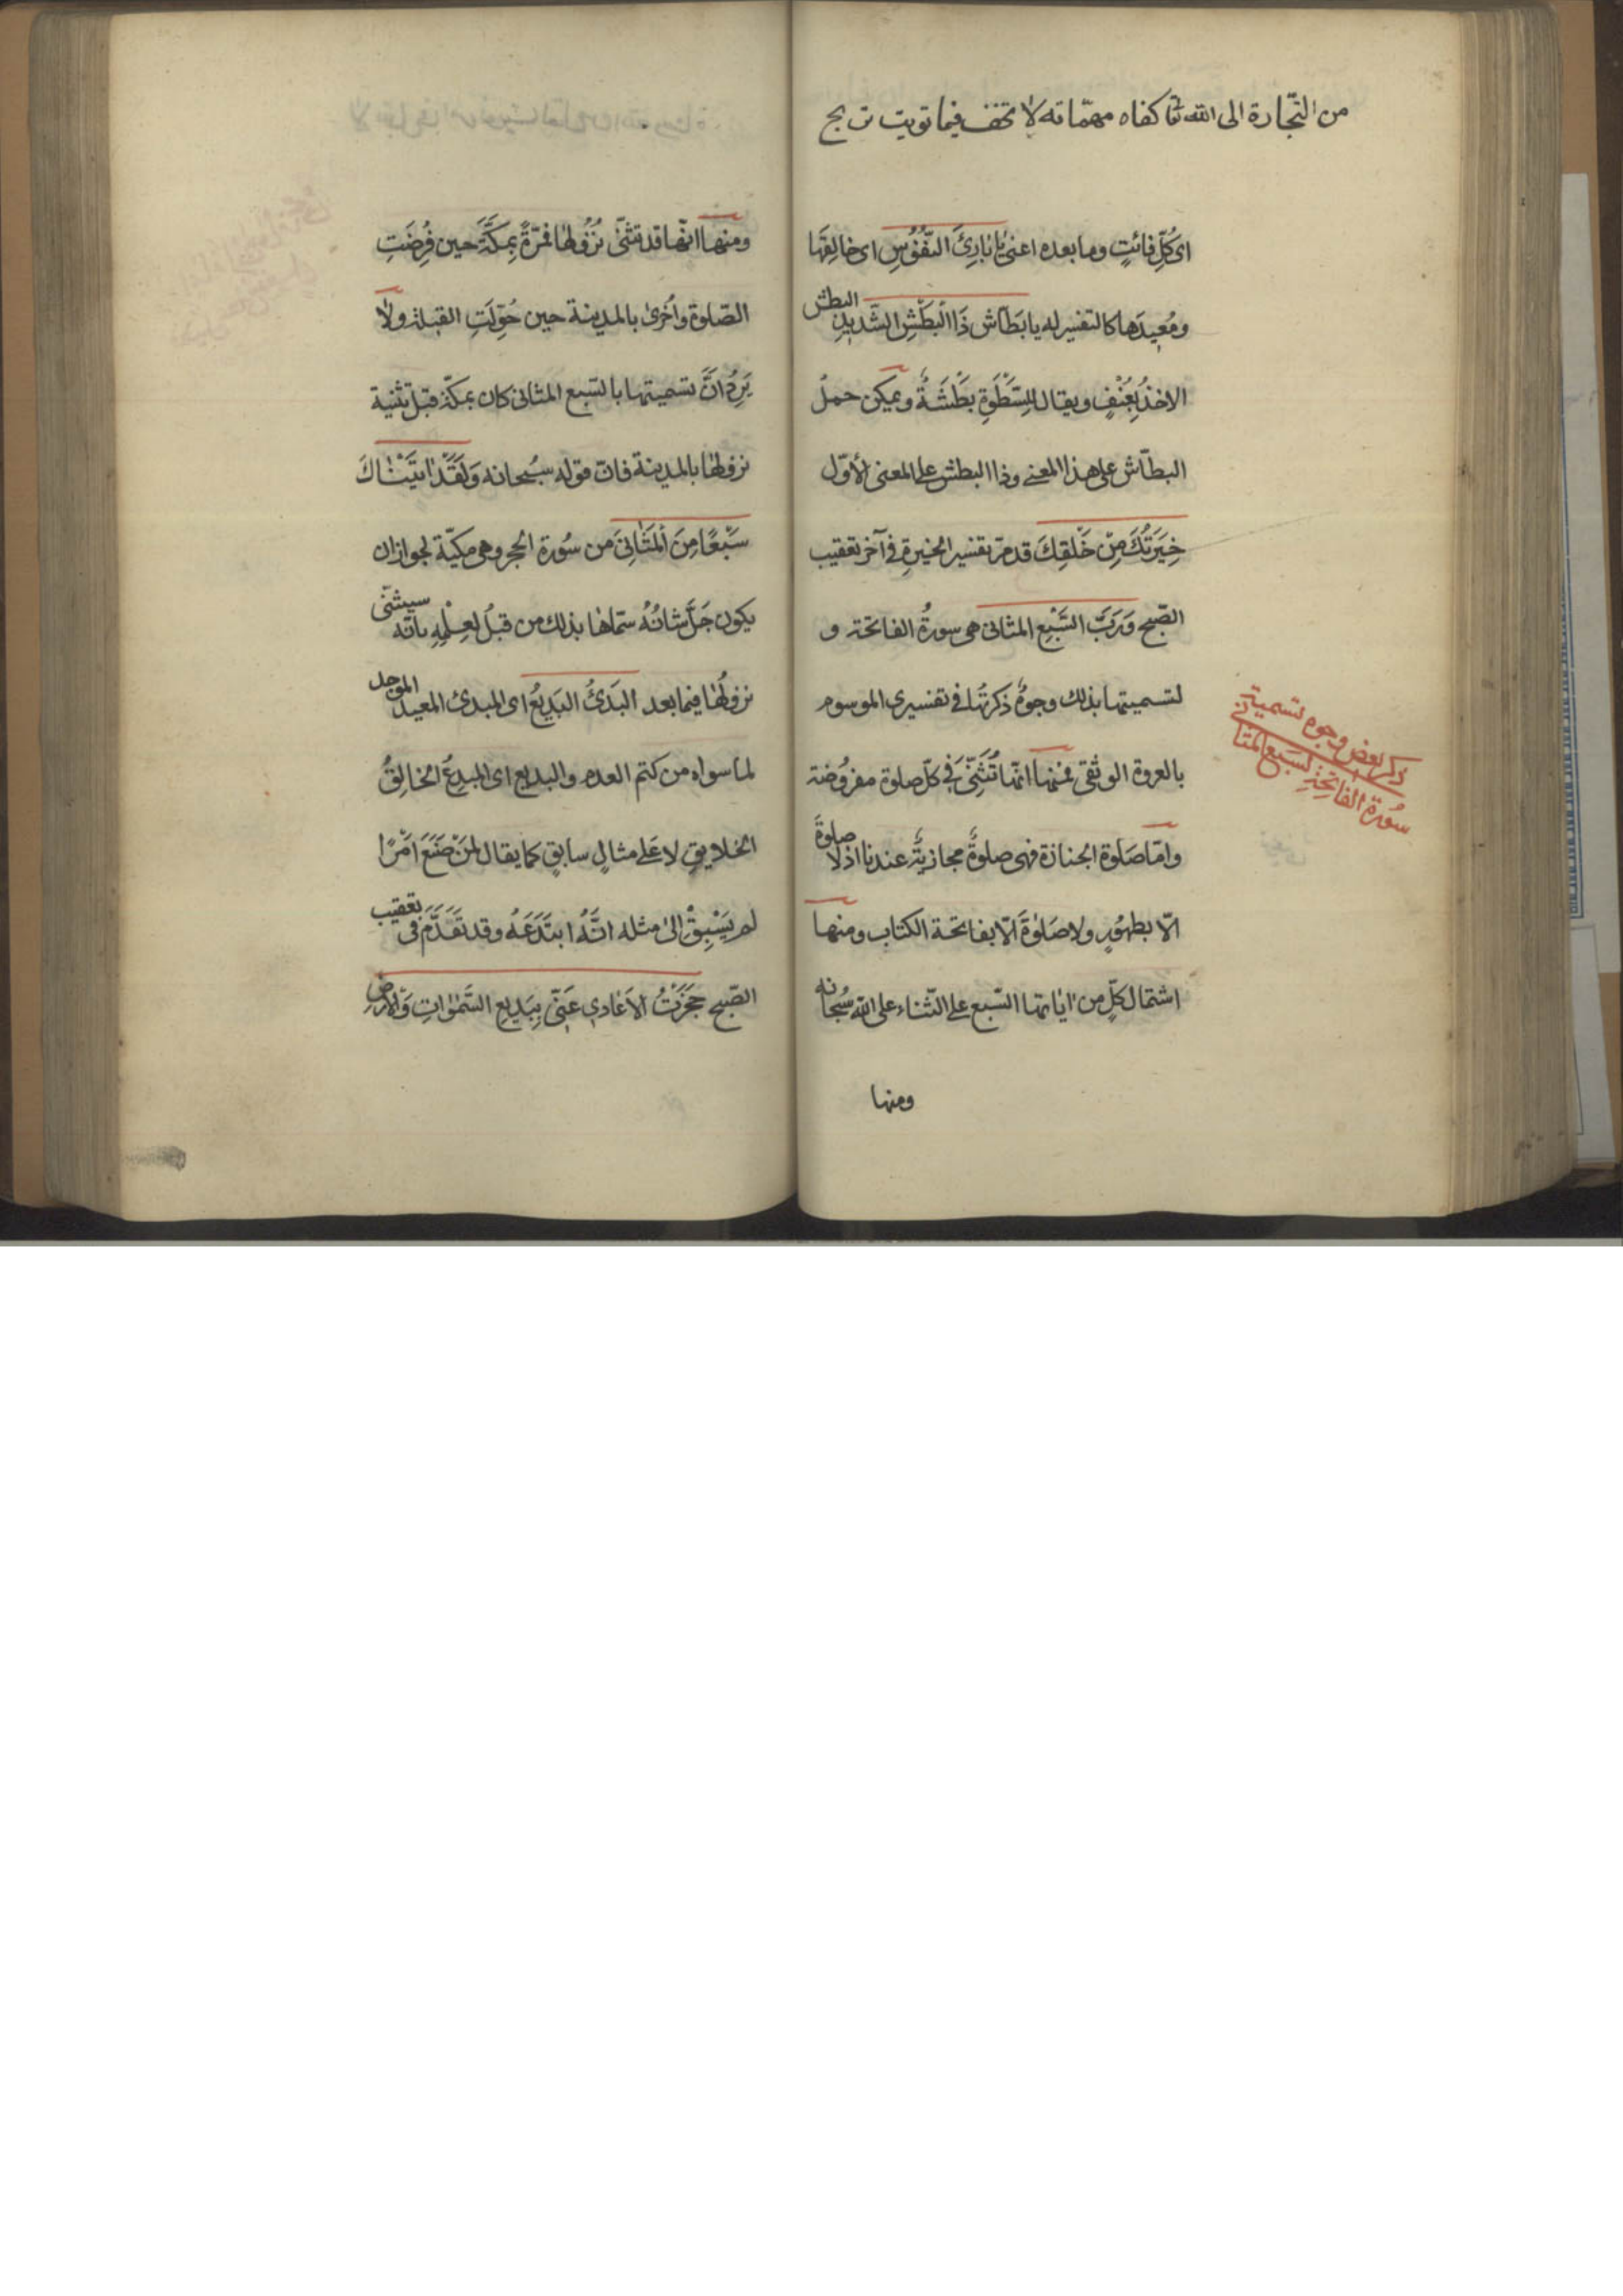 من التجارة الى الله تعا كفاه مهماته لا تخف فيما نويت
اى كُلِّ فائتٍ وما بعده اعنى يا بارِئَ النُّفُوسِ اى خالِقَها
ومُعيدَها كالتفسير له يا بَطّاش ذَا الْبَطْشِ الشَّديدِ البطش
الاخذُ بِعُنْفٍ ويقال للسَّطْوَةِ بَطْشَةٌ ويمكن حملُ
البطّاش على هذا المعنى وذا البطش على المعنى الأوّل
خِيَرَتُكَ مِنْ خَلْقِكَ قد مرّ تفسير الخيرةِ فى آخر تعقيب
الصّبح وَرَبَّ السَّبْعِ المثانى هى سورةُ الفاتحة و
لتسميتها بذلك وجوهٌ ذكرتُها فى تفسيرى الموسوم
بالعروة الوثقى فمنها انّها تُثَنّى فى كلّ صلوة مفرُوضة
وامّا صَلوة الجنازة فهى صلوةٌ مجازيةٌ عندنا اذ لا صلوةَ
الّا بطهُورٍ ولا صَلوةَ الّا بفاتحة الكتاب ومنها
اشتمال كلٍّ من اياتها السّبع على الثّناء على الله سُبحانه
ومنها
ذكر بعض وجوه تسمية
سُورة الفاتِحَةِ لسَبع المثانى
ومنها انّها قد تثنّى نُزُولها فمَرّةً بِمكَّةَ حين فُرِضَتِ
الصّلوة واُخرى بالمدينة حين حُوِّلَتِ القبلة ولا
يَرِدُ انَّ تسميتها بالسّبع المثانى كان بمكّة قبل تثنية
نزولها بالمدينة فانّ قوله سبُحانه وَلَقَدْ اتَيْنٰاكَ
سَبْعًا مِنَ الْمَثٰانِىَ من سُورة الحجر وهى مكيّة لجواز ان
يكون جَلَّ شانُهُ سمّاها بذلك من قبلُ لعِلْمِهِ بانّه سيثنّى
نزولُها فيما بعد البَدئُ البَديعُ اى المبدئ المعيد الموجد
لما سواه من كتم العدم والبديع اى المبدِعُ الخالِقُ
الخلايقِ لا عَلى مثالٍ سابقٍ كما يقال لمَنْ صَنَعَ اَمْرًا
لم يَسْبِقْ الىٰ مثله اَنَّهُ ابتَدَعَهُ وقد تَقَدَّمَ فى تعقيب
الصّبح حَجَزْتُ الاَعٰادِى عَنّى بِبَديعِ السَّمٰوٰاتِ وَالاَرْضِ